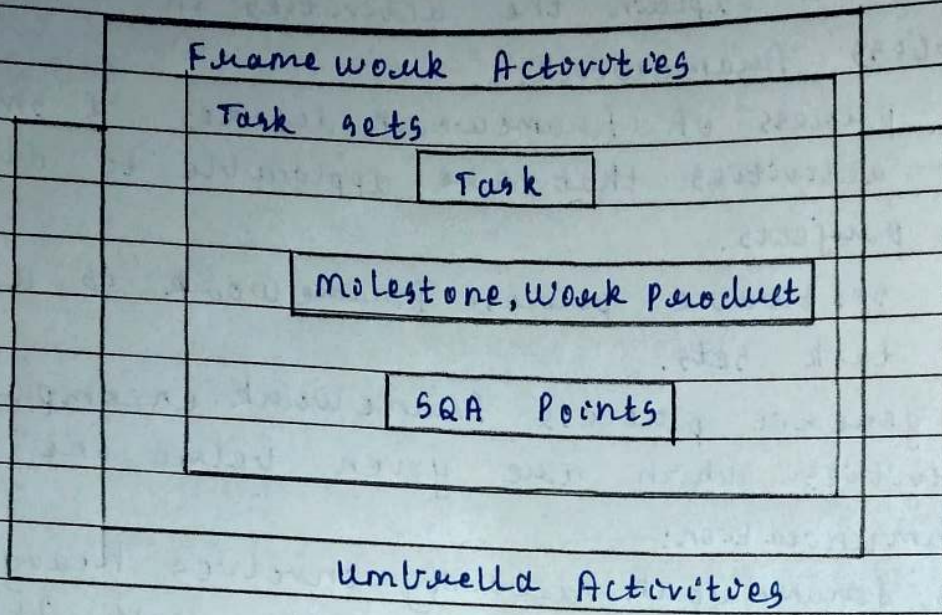 Frame work Activities
Task sets
Task
Milestone, Work Product
SQA Points
Umbrella Activities